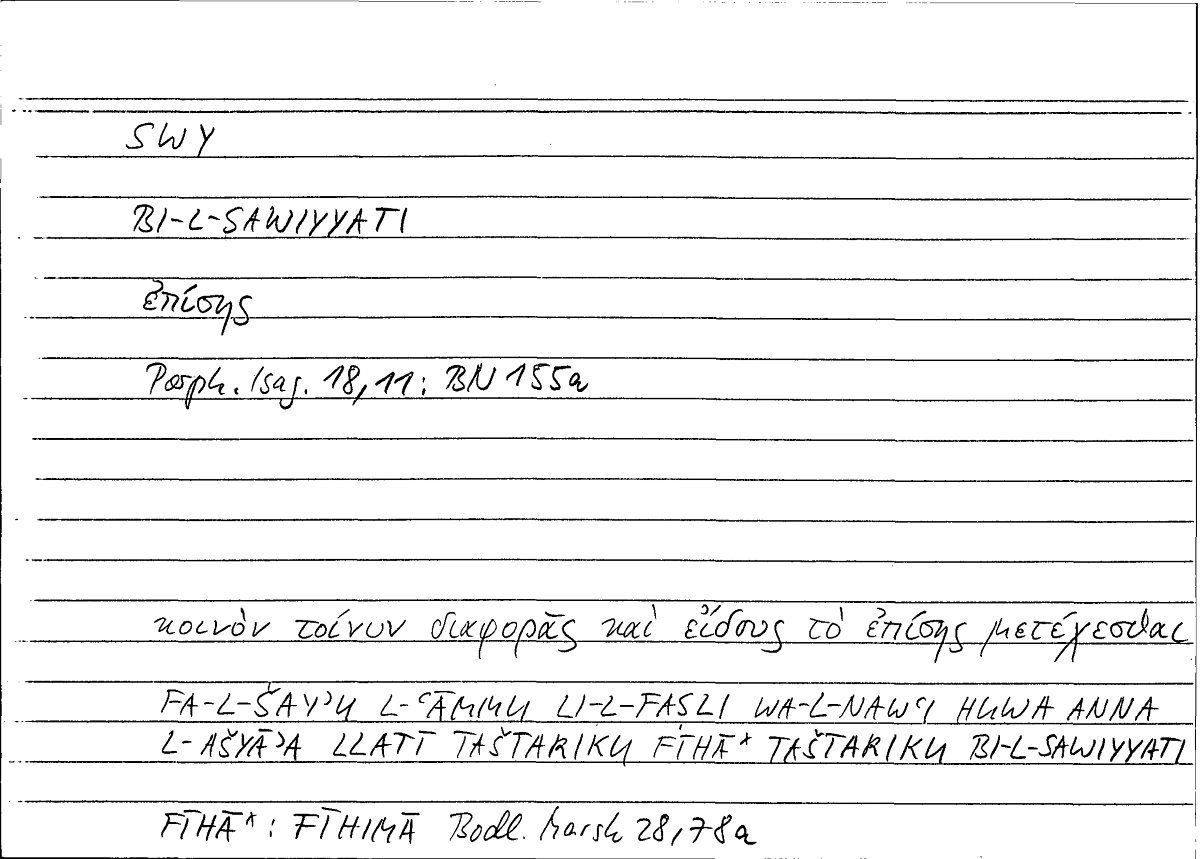 SWY
BI-L-SAWIYYATI
ἐπίσης
Porph. Isag. 18,11: BN 155a
κοινὸν τοίνυν διαφορᾶς καὶ εἴδους τὸ ἐπίσης μετέχεσθαι
FA-L-ŠAYʾU L-ʿĀMMU LI-L-FASLI WA-L-NAWʿI HUWA ANNA
L-AŠYĀʾA LLATĪ TAŠTARIKU FĪHĀ* TAŠTARIKU BI-L-SAWIYYATI
FĪHĀ*: FĪHIMĀ Bodl. Marsh 28,78a